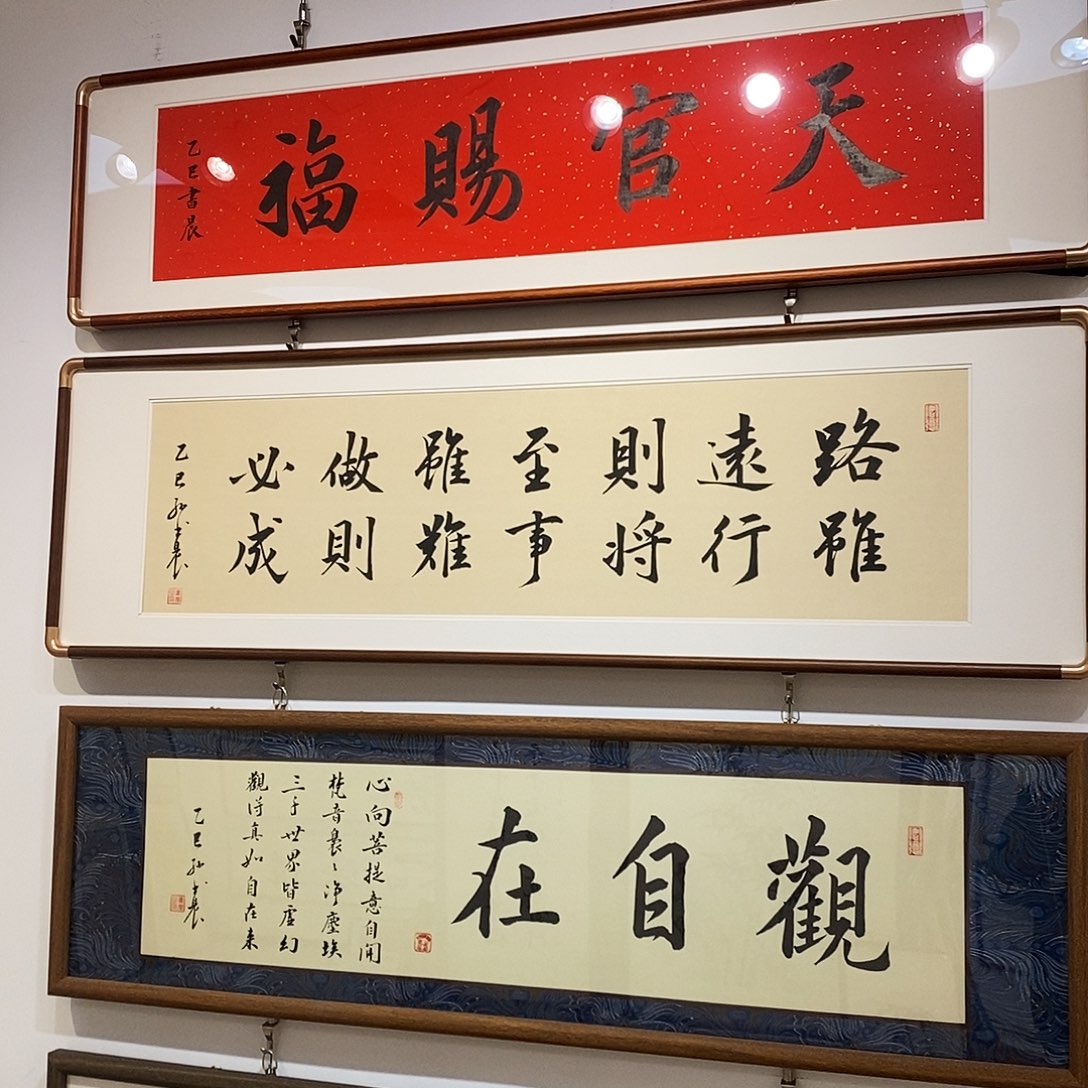 天官賜福
乙巳書晨
路雖
遠行
則將
至事
雖難
做則
必成
乙巳
觀自在
心向菩提意自開
梵音裊裊淨塵埃
三千世界皆虛幻
觀得真如自在來
乙巳